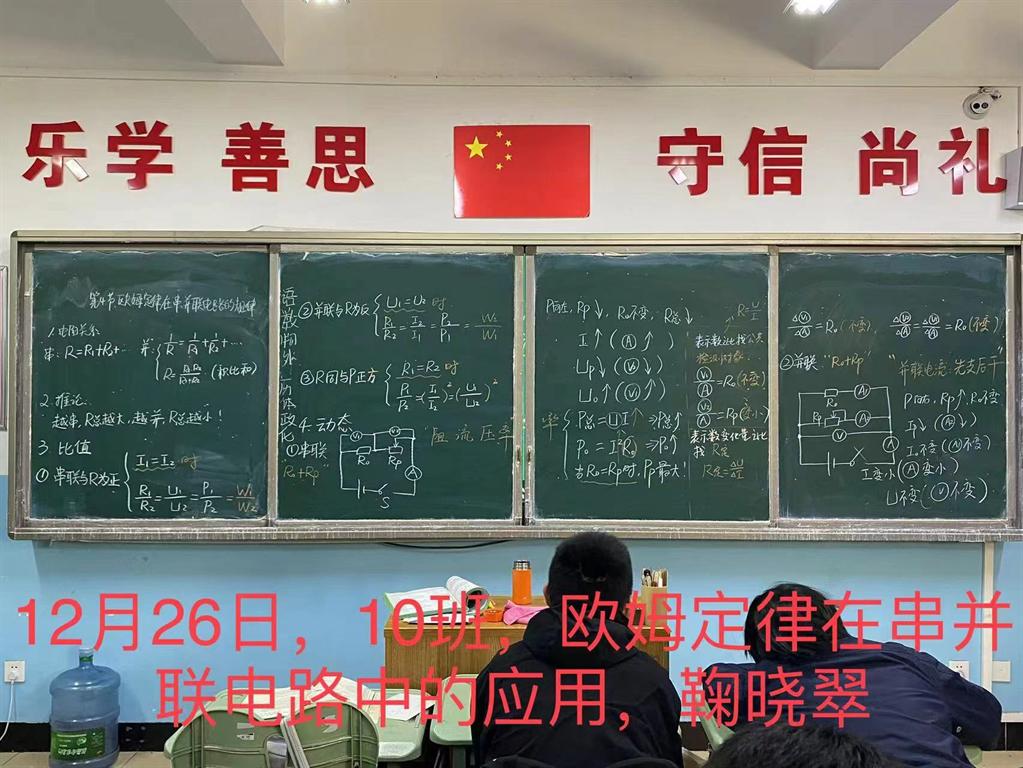 乐学 善思 守信 尚礼
第4节 欧姆定律在串并联电路的规律
1.电阻关系
串: R=R₁+R₂+… 并: { 1/R=1/R₁+1/R₂+…
R=R₁R₂/(R₁+R₂) (积比和)
2. 推论
越串, R总越大, 越并, R总越小!
3 比值
①串联与R为正 { I₁=I₂时
R₁/R₂=U₁/U₂=P₁/P₂=W₁/W₂
语数物外
历体政化
②并联与R为反 { U₁=U₂时
R₂/R₁=I₁/I₂=P₁/P₂=W₁/W₂
③R同与P正方 { R₁=R₂时
P₁/P₂=(I₁/I₂)²=(U₁/U₂)²
4 动态
①串联
"R₀+Rp"
"阻流压率"
V₁ V₂
R₀ Rp
V A
S
P向左, Rp↓, R₀不变, R总↓
I↑(A↑)
Up↓(V₂↓)
U₀↑(V₁↑)
率 { P总=UI↑ ⇒P总↑
P₀=I²R₀ ⇒P₀↑
当R₀=Rp时, Pp最大!
R=U/I
表示数之比找公共
V₁/A=R₀(不变)
V₂/A=Rp(变小)
表示数变化量之比
找R定
R定=ΔU/ΔI
ΔV₁/ΔA=R₀(不变) ΔV₂/ΔA=ΔV₁/ΔA=R₀(不变)
②并联 "R₀+Rp" "并联电流, 先支后干"
R₀ A
Rp A₁
V
A
P向右, Rp↑, R₀不变
Ip↓(A₁↓)
I₀不变(A₀不变)
I变小(A变小)
U不变(V不变)
12月26日，10班，欧姆定律在串并
联电路中的应用，鞠晓翠